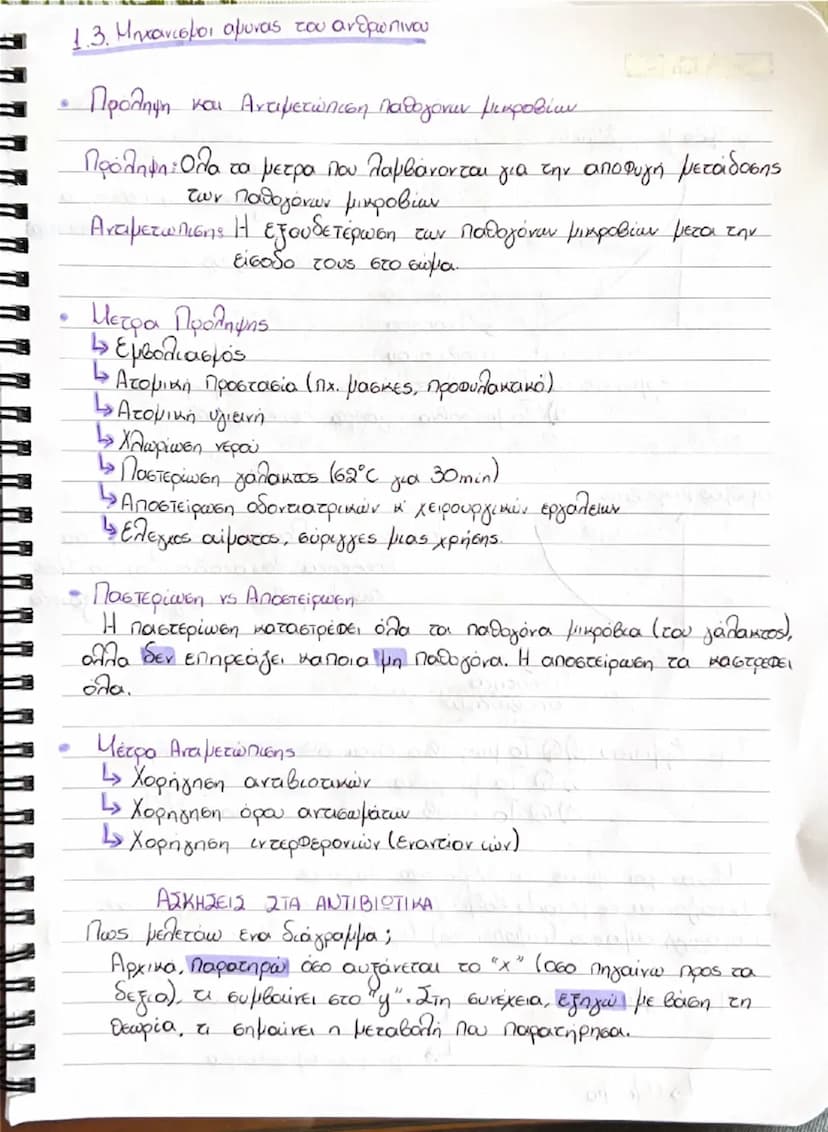 1.3. Μηχανισμοι αμυνας του ανθρωπινου
• Πρόληψη και Αντιμετώπιση παθογόνων μικροβίων
Πρόληψη: Όλα τα μετρα που λαμβάνονται για την αποφυγή μετάδοσης
των παθογόνων μικροβίων
Αντιμετώπιση: Η εξουδετέρωση των παθογόνων μικροβίων μετα την
είσοδο τους στο σώμα.
• Μετρα Πρόληψης
↳ Εμβολιασμός
↳ Ατομική Προστασία (πχ. μασκες, προφυλακτικό)
↳ Ατομική υγιεινή
↳ Χλωρίωση νερού
↳ Παστερίωση γάλακτος (62°C για 30min)
↳ Αποστείρωση οδοντιατρικών κ' χειρουργικών εργαλείων
↳ Έλεγχος αίματος, σύριγγες μιας χρήσης.
• Παστερίωση vs Αποστείρωση
Η παστερίωση καταστρέφει όλα τα παθογόνα μικρόβια (του γάλακτος),
αλλα δεν επηρεάζει καποια μη παθογόνα. Η αποστείρωση τα καστρεφει
όλα.
• Μέτρα Αντιμετώπισης
↳ Χορήγηση αντιβιοτικών
↳ Χορήγηση όρου αντισωμάτων
↳ Χορήγηση ιντερφερονιών (Εναντίον ιών)
ΑΣΚΗΣΕΙΣ ΣΤΑ ΑΝΤΙΒΙΩΤΙΚΑ
Πως μελετάω ενα διάγραμμα;
Αρχικα, παρατηρώ όσο αυξάνεται το "x" (οσο πηγαίνω προς τα
δεξια), τι συμβαίνει στο "y". Στη συνέχεια, εξηγώ με βάση τη
θεωρία, τι σημαίνει η μεταβολή που παρατήρησα.